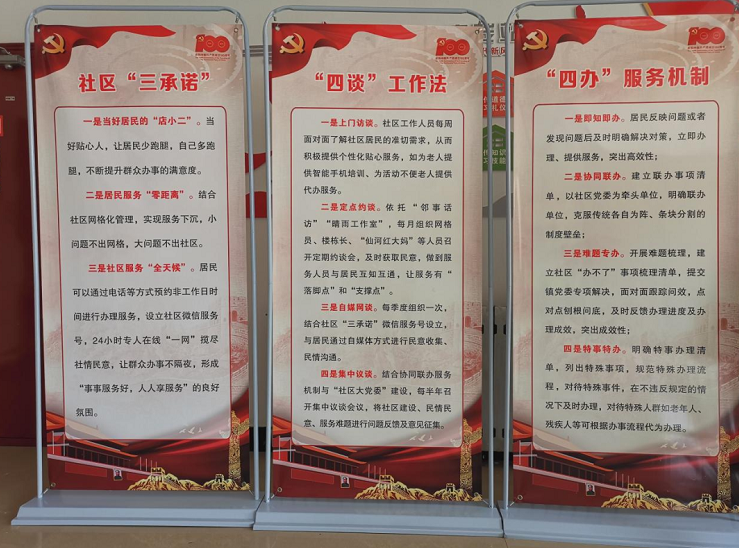 社区“三承诺”
一是当好居民的“店小二”。当
好贴心人，让居民少跑腿，自己多跑
腿，不断提升群众办事的满意度。
二是居民服务“零距离”。结合
社区网格化管理，实现服务下沉，小
问题不出网格，大问题不出社区。
三是社区服务“全天候”。居民
可以通过电话等方式预约非工作日时
间进行办理服务，设立社区微信服务
号，24小时专人在线“一网”揽尽
社情民意，让群众办事不隔夜，形成
“事事服务好，人人享服务”的良好
氛围。
100
“四谈”工作法
一是上门访谈。社区工作人员每周
面对面了解社区居民的准切需求，从而
积极提供个性化贴心服务，如为老人提
供智能手机培训、为活动不便老人提供
代办服务。
二是定点约谈。依托“邻事话
访”“晴雨工作室”，每月组织网格
员、楼栋长、“仙河红大妈”等人员召
开定期约谈会，及时获取民意，做到服
务人员与居民互知互通，让服务有“
落脚点”和“支撑点”。
三是自媒网谈。每季度组织一次，
结合社区“三承诺”微信服务号设立，
与居民通过自媒体方式进行民意收集、
民情沟通。
四是集中议谈。结合协同联办服务
机制与“社区大党委”建设，每半年召
开集中议谈会议，将社区建设、民情民
意、服务难题进行问题反馈及意见征集。
100
“四办”服务机制
一是即知即办。居民反映问题或者
发现问题后及时明确解决对策，立即办
理、提供服务，突出高效性；
二是协同联办。建立联办事项清
单，以社区党委为牵头单位，明确联办
单位，克服传统各自为阵、条块分割的
制度壁垒；
三是难题专办。开展难题梳理，建
立社区“办不了”事项梳理清单，提交
镇党委专项解决，面对面跟踪问效，点
对点刨根问底，及时反馈办理进度及办
理成效，突出成效性；
四是特事特办。明确特事办理清
单，列出特殊事项，规范特殊办理流
程，对待特殊事件，在不违反规定的情
况下及时办理，对待特殊人群如老年人、
残疾人等可根据办事流程代为办理。